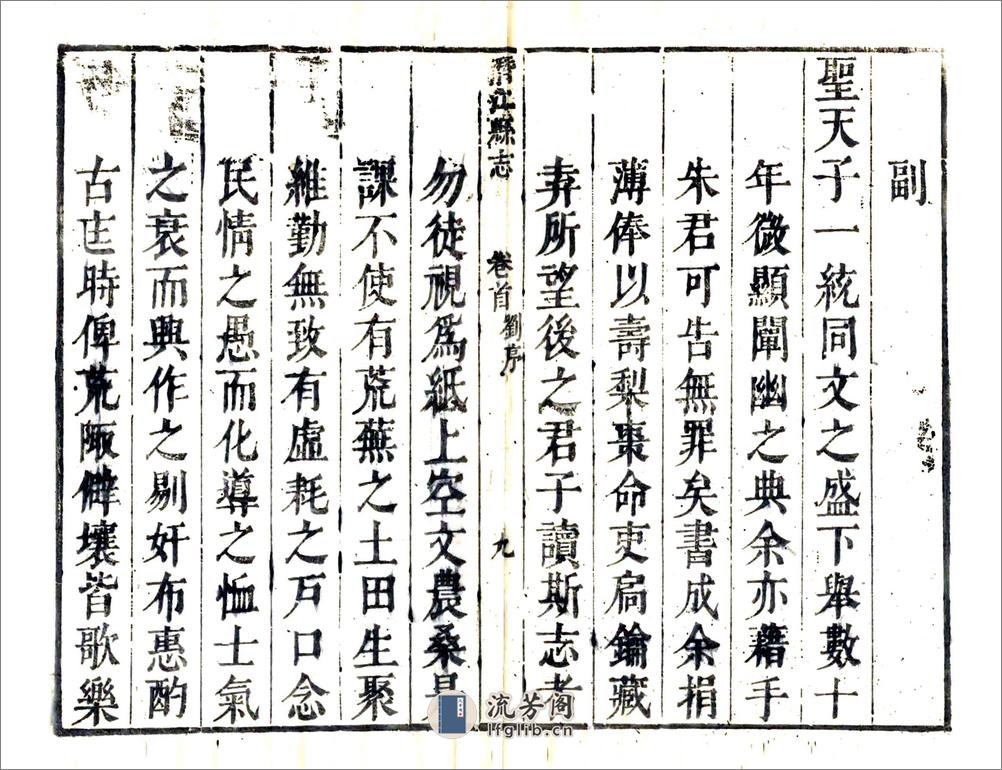 副
聖天子一統同文之盛下舉數十
年微顯闡幽之典余亦藉手
朱君可告無罪矣書成余捐
薄俸以壽梨棗命吏扃鑰藏
弆所望後之君子讀斯志者
潛江縣志 卷首 劉序 九
勿徒視為紙上空文農桑是
課不使有荒蕪之土田生聚
維勤無致有虛耗之戸口念
民情之愚而化導之恤士氣
之衰而興作之剔奸布惠酌
古世時俾荒陬僻壤皆歌樂
流芳阁
lfglib.cn